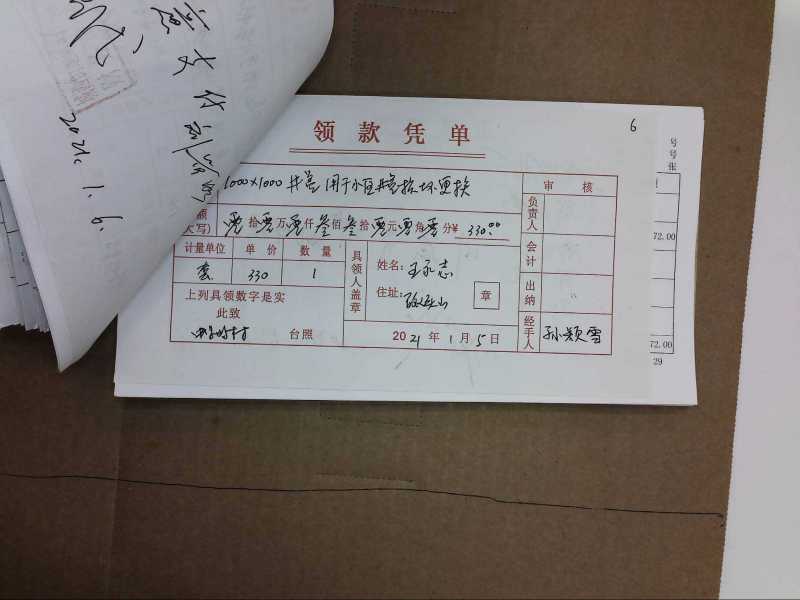 2021.1.6.
领款凭单
6
号
号
张
1000×1000井盖用于小区井盖损坏更换
审核
额
大写)
零拾零万零仟叁佰叁拾零元零角零分¥ 330.00
负责人
72.00
计量单位 单价 数量
套 330 1
具领人盖章
姓名:王永志
住址:
章
会计
出纳
上列具领数字是实
此致
台照
2021年1月5日
经手人
孙颖雪
72.00
29